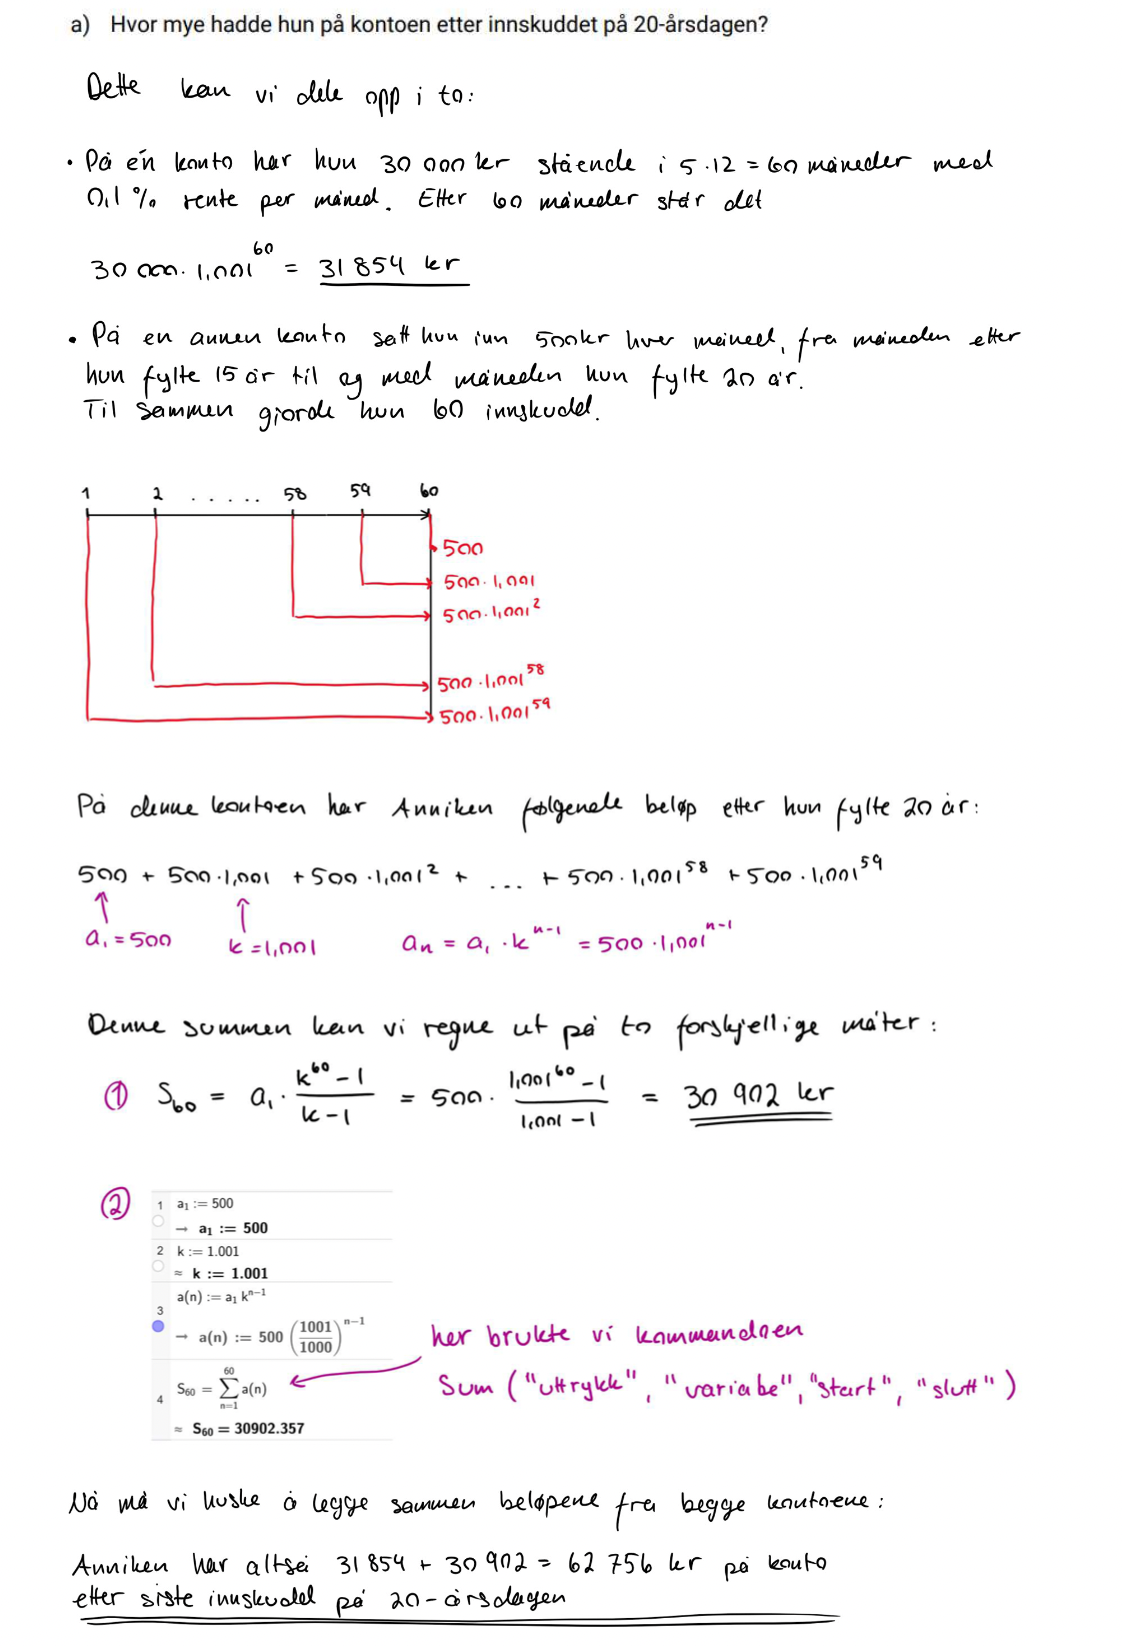 a) Hvor mye hadde hun på kontoen etter innskuddet på 20-årsdagen?
Dette kan vi dele opp i to:
• På én konto har hun 30 000 kr stående i 5·12 = 60 måneder med
0,1 % rente per måned. Etter 60 måneder står det
30 000 · 1,001^60 = 31 854 kr
• På en annen konto satt hun inn 500kr hver måned, fra måneden etter
hun fylte 15 år til og med måneden hun fylte 20 år.
Til sammen gjorde hun 60 innskudd.
1 2 ..... 58 59 60
500
500 · 1,001
500 · 1,001^2
500 · 1,001^58
500 · 1,001^59
På denne kontoen har Anniken følgende beløp etter hun fylte 20 år:
500 + 500 · 1,001 + 500 · 1,001^2 + ... + 500 · 1,001^58 + 500 · 1,001^59
a₁ = 500 k = 1,001 aₙ = a₁ · k^(n-1) = 500 · 1,001^(n-1)
Denne summen kan vi regne ut på to forskjellige måter:
① S₆₀ = a₁ · (k^60 − 1)/(k − 1) = 500 · (1,001^60 − 1)/(1,001 − 1) = 30 902 kr
②
1 a₁ := 500
→ a₁ := 500
2 k := 1.001
≈ k := 1.001
a(n) := a₁ k^(n−1)
3
→ a(n) := 500 (1001/1000)^(n−1)
her brukte vi kommandoen
4 S₆₀ = ∑_(n=1)^60 a(n)
Sum ("uttrykk", "variabe", "start", "slutt")
≈ S₆₀ = 30902.357
Nå må vi huske å legge sammen beløpene fra begge kontoene:
Anniken har altså 31 854 + 30 902 = 62 756 kr på konto
etter siste innskudd på 20-årsdagen